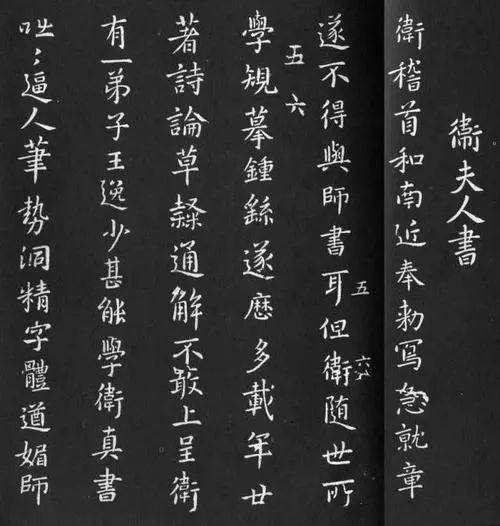 衛夫人書
衛稽首和南近奉勅寫急就章
五 六
遂不得與師書耳但衛隨世所
五 六
學規摹鍾繇遂歷多載年廿
著詩論草隸通解不敢上呈衛
有一弟子王逸少甚能學衛真書
咄〻逼人筆勢洞精字體遒媚師